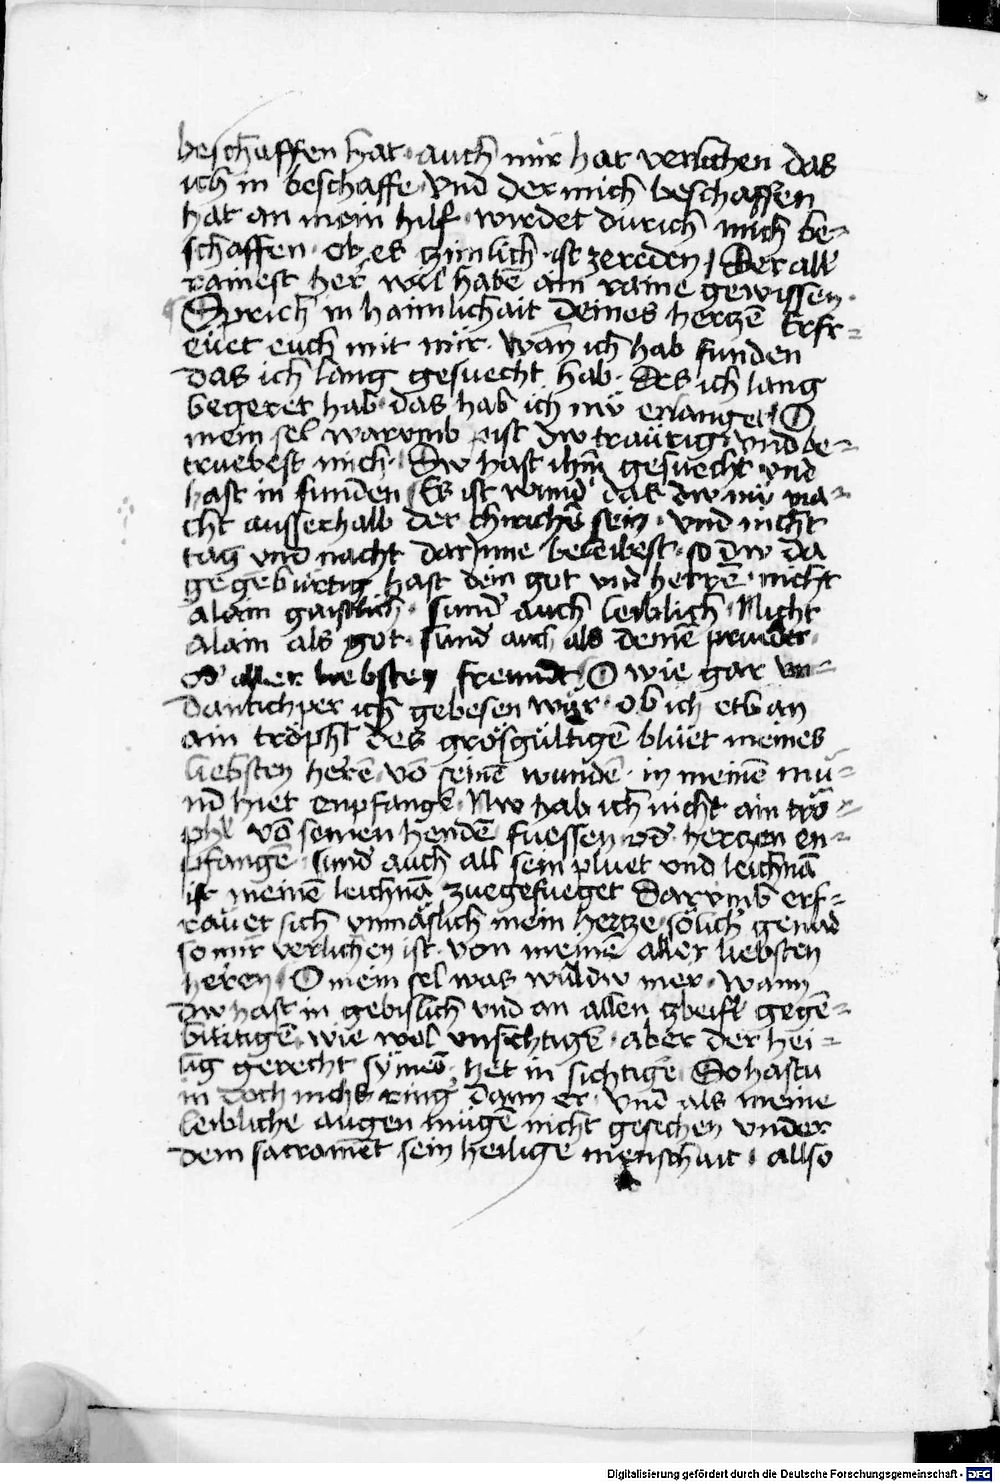 beschaffen hat · auch mir hat verlichen das
ich in beschaffe · vnd der mich beschaffen
hat an mein hilf · wirdet durich mich be-
schaffen · ob es zimlich · ist zereden / Der all
rainest her wil habē ain raine gewissen ·
Sprich in haimlichait deines hertzē Erfr-
eüet euch mit mir · wān ich hab funden
das ich lang gesuecht hab · Des ich lang
begeret hab · das hab ich nw erlanget / O
mein sel warvmb pist dw traürig vnd be-
truebest mich · Dw hast ihm gesuecht vnd
hast in funden / Es ist wund' das dw nw ma-
cht ausserhalb der chirichē sein · vnd nicht
tag vnd nacht darinne beleibest · so dw da
gegēbürtig hast dein got vnd herrē · nicht
alain gaistlich · sund' auch leiblich · Nicht
alain als got · sund' auch als deinē prueder
od' aller liebsten freundt / O wie gar vn-
danckhper ich gebesen wär · ob ich etban
ain tröphl des grösgültigē blüet meines
liebsten herē vō seinē wundē · in meinē mu-
nd hiet enpfangē · Nw hab ich nicht ain trö-
phl vō seinen hendē fuessen od' hertzen en-
pfangē · sund' auch all sein pluet vnd leichnā
ist meinē leichnā zuegefueget Darvmb erf-
räuet sich vnmäslich mein hertze · sölich' genad
so mir verlichen ist · von meinē aller liebsten
heren · O mein sel was wildw mer · wann
dw hast in gebislich vnd an allen zbeifl gegē-
bürtigē · wie wol vnsichtigē · aber der hei-
lig gerecht symeō · het in sichtigē · So hastu
in doch nicht ring' dann er · vnd als meine
leibliche augen mügē nicht gesechen vnder
dem sacramēt sein heilige menschait · allso
Digitalisierung gefördert durch die Deutsche Forschungsgemeinschaft - DFG